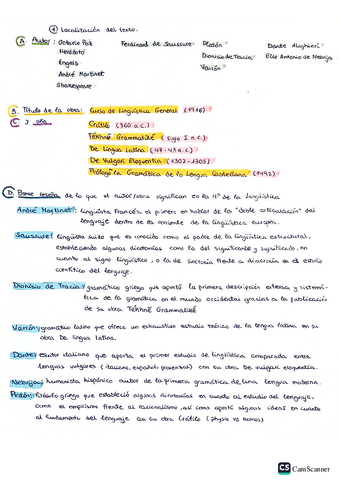 ① Localización del texto.
A. Autor: Octavio Paz Ferdinand de Saussure Platón Dante Alighieri
Heródoto Dionisio de Tracia Elio Antonio de Nebrija
Engels Varrón
André Martinet
Shakespeare
B. Título de la obra: Curso de Lingüística General (1916)
C y año Crátilo (360 a.c.)
Tékhnē Grammatikē (siglo I a.c.)
De Lingua Latina (47-43 a.c.)
De Vulgari Eloquentia (1302-1305)
Prólogo la Gramática de la Lengua Castellana (1492)
D. Breve reseña de lo que el autor/obra significan en la Hª de la lingüística
André Martinet: lingüista francés, el primero en hablar de la "doble articulación" del
lenguaje dentro de la corriente de la lingüística europea.
Saussure: lingüista suizo que es conocido como el padre de la lingüística estructural,
estableciendo algunas dicotomías como la del significante y significado, en
cuanto al signo lingüístico, o la de sincronía frente a diacronía en el estudio
científico del lenguaje.
Dionisio de Tracia: gramático griego que aportó la primera descripción extensa y sistemá-
tica de la gramática en el mundo occidental gracias a la publicación
de su obra Tekhnē Grammatikē
Varrón: gramático latino que ofrece un exhaustivo estudio teórico de la lengua latina en su
obra De lingua latina.
Dante: escritor italiano que aporta el primer estudio de lingüística comparada entre
lenguas vulgares (italiano, español, provenzal) con su obra De vulgari eloquentia.
Nebrija: humanista hispánico autor de la primera gramática de una lengua moderna.
Platón: filósofo griego que estableció algunas dicotomías en cuanto al estudio del lenguaje,
como el empirismo frente al racionalismo, así como aportó algunas ideas en cuanto
al fundamento del lenguaje con su obra Crátilo (physis vs nomos)
CS CamScanner